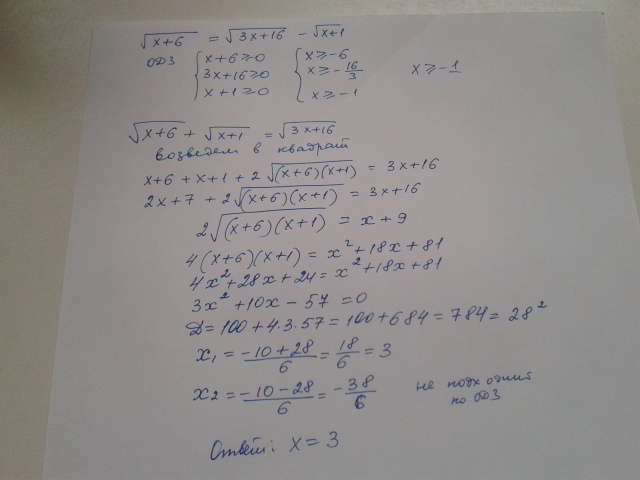 √x+6 = √3x+16 - √x+1
ОДЗ { x+6≥0 { x≥-6
3x+16≥0 x≥-16/3 x≥-1
x+1≥0 x≥-1
√x+6 + √x+1 = √3x+16
возведем в квадрат
x+6+x+1+2√(x+6)(x+1) = 3x+16
2x+7+2√(x+6)(x+1) = 3x+16
2√(x+6)(x+1) = x+9
4(x+6)(x+1) = x²+18x+81
4x²+28x+24=x²+18x+81
3x²+10x-57=0
D=100+4·3·57=100+684=784=28²
x₁=(-10+28)/6=18/6=3
x₂=(-10-28)/6=-38/6 не подходит
по ОДЗ
Ответ: x=3